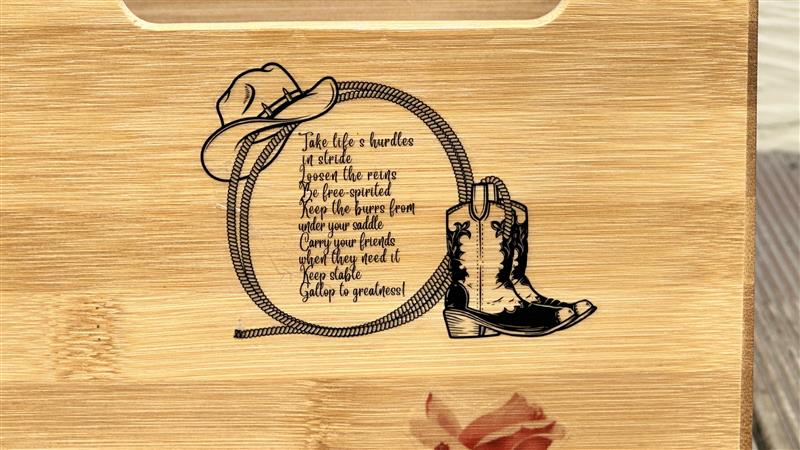 Take life's hurdles
in stride
Loosen the reins
Be free-spirited
Keep the burrs from
under your saddle
Carry your friends
when they need it
Keep stable
Gallop to greatness!